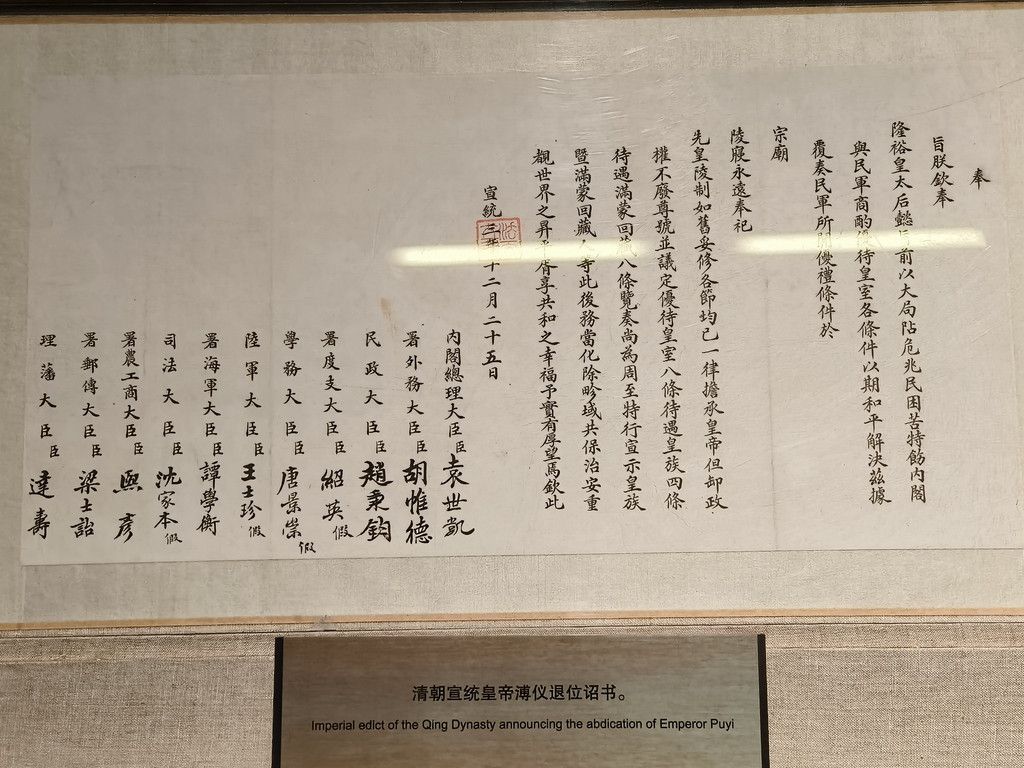 奉
旨朕欽奉
隆裕皇太后懿旨前以大局阽危兆民困苦特飭内閣
與民軍商酌優待皇室各條件以期和平解決茲據
覆奏民軍所開優禮條件於
宗廟
陵寢永遠奉祀
先皇陵制如舊妥修各節均已一律擔承皇帝但卸政
權不廢尊號並議定優待皇室八條待遇皇族四條
待遇滿蒙回藏八條覽奏尚為周至特行宣示皇族
暨滿蒙回藏人等此後務當化除畛域共保治安重
覩世界之昇平胥享共和之幸福予實有厚望焉欽此
宣統三年十二月二十五日
内閣總理大臣臣袁世凱
署外務大臣臣胡惟德
民政大臣臣趙秉鈞
署度支大臣臣紹英假
學務大臣臣唐景崇假
陸軍大臣臣王士珍假
署海軍大臣臣譚學衡
司法大臣臣沈家本假
署農工商大臣臣熙彥
署郵傳大臣臣梁士詒
理藩大臣臣達壽
清朝宣统皇帝溥仪退位诏书。
Imperial edict of the Qing Dynasty announcing the abdication of Emperor Puyi